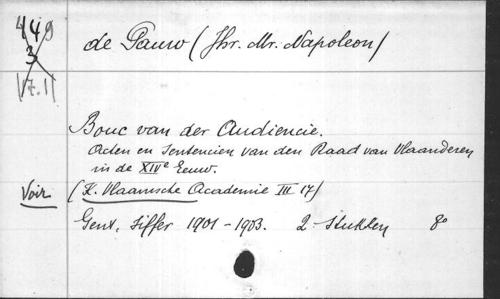 449
3
17.11
de Pauw (Jhr. Mr. Napoleon)
Bouc van der Audiencie.
Acten en Sentencien van den Raad van Vlaanderen
in de XIVe Eeuw.
Voir (K. Vlaamsche Academie III 17)
Gent, Siffer 1901-1903. 2 Stukken 8°